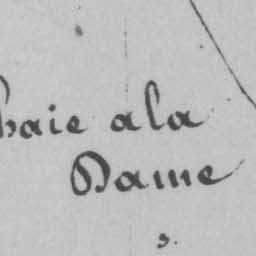 haie a la
Dame
3.